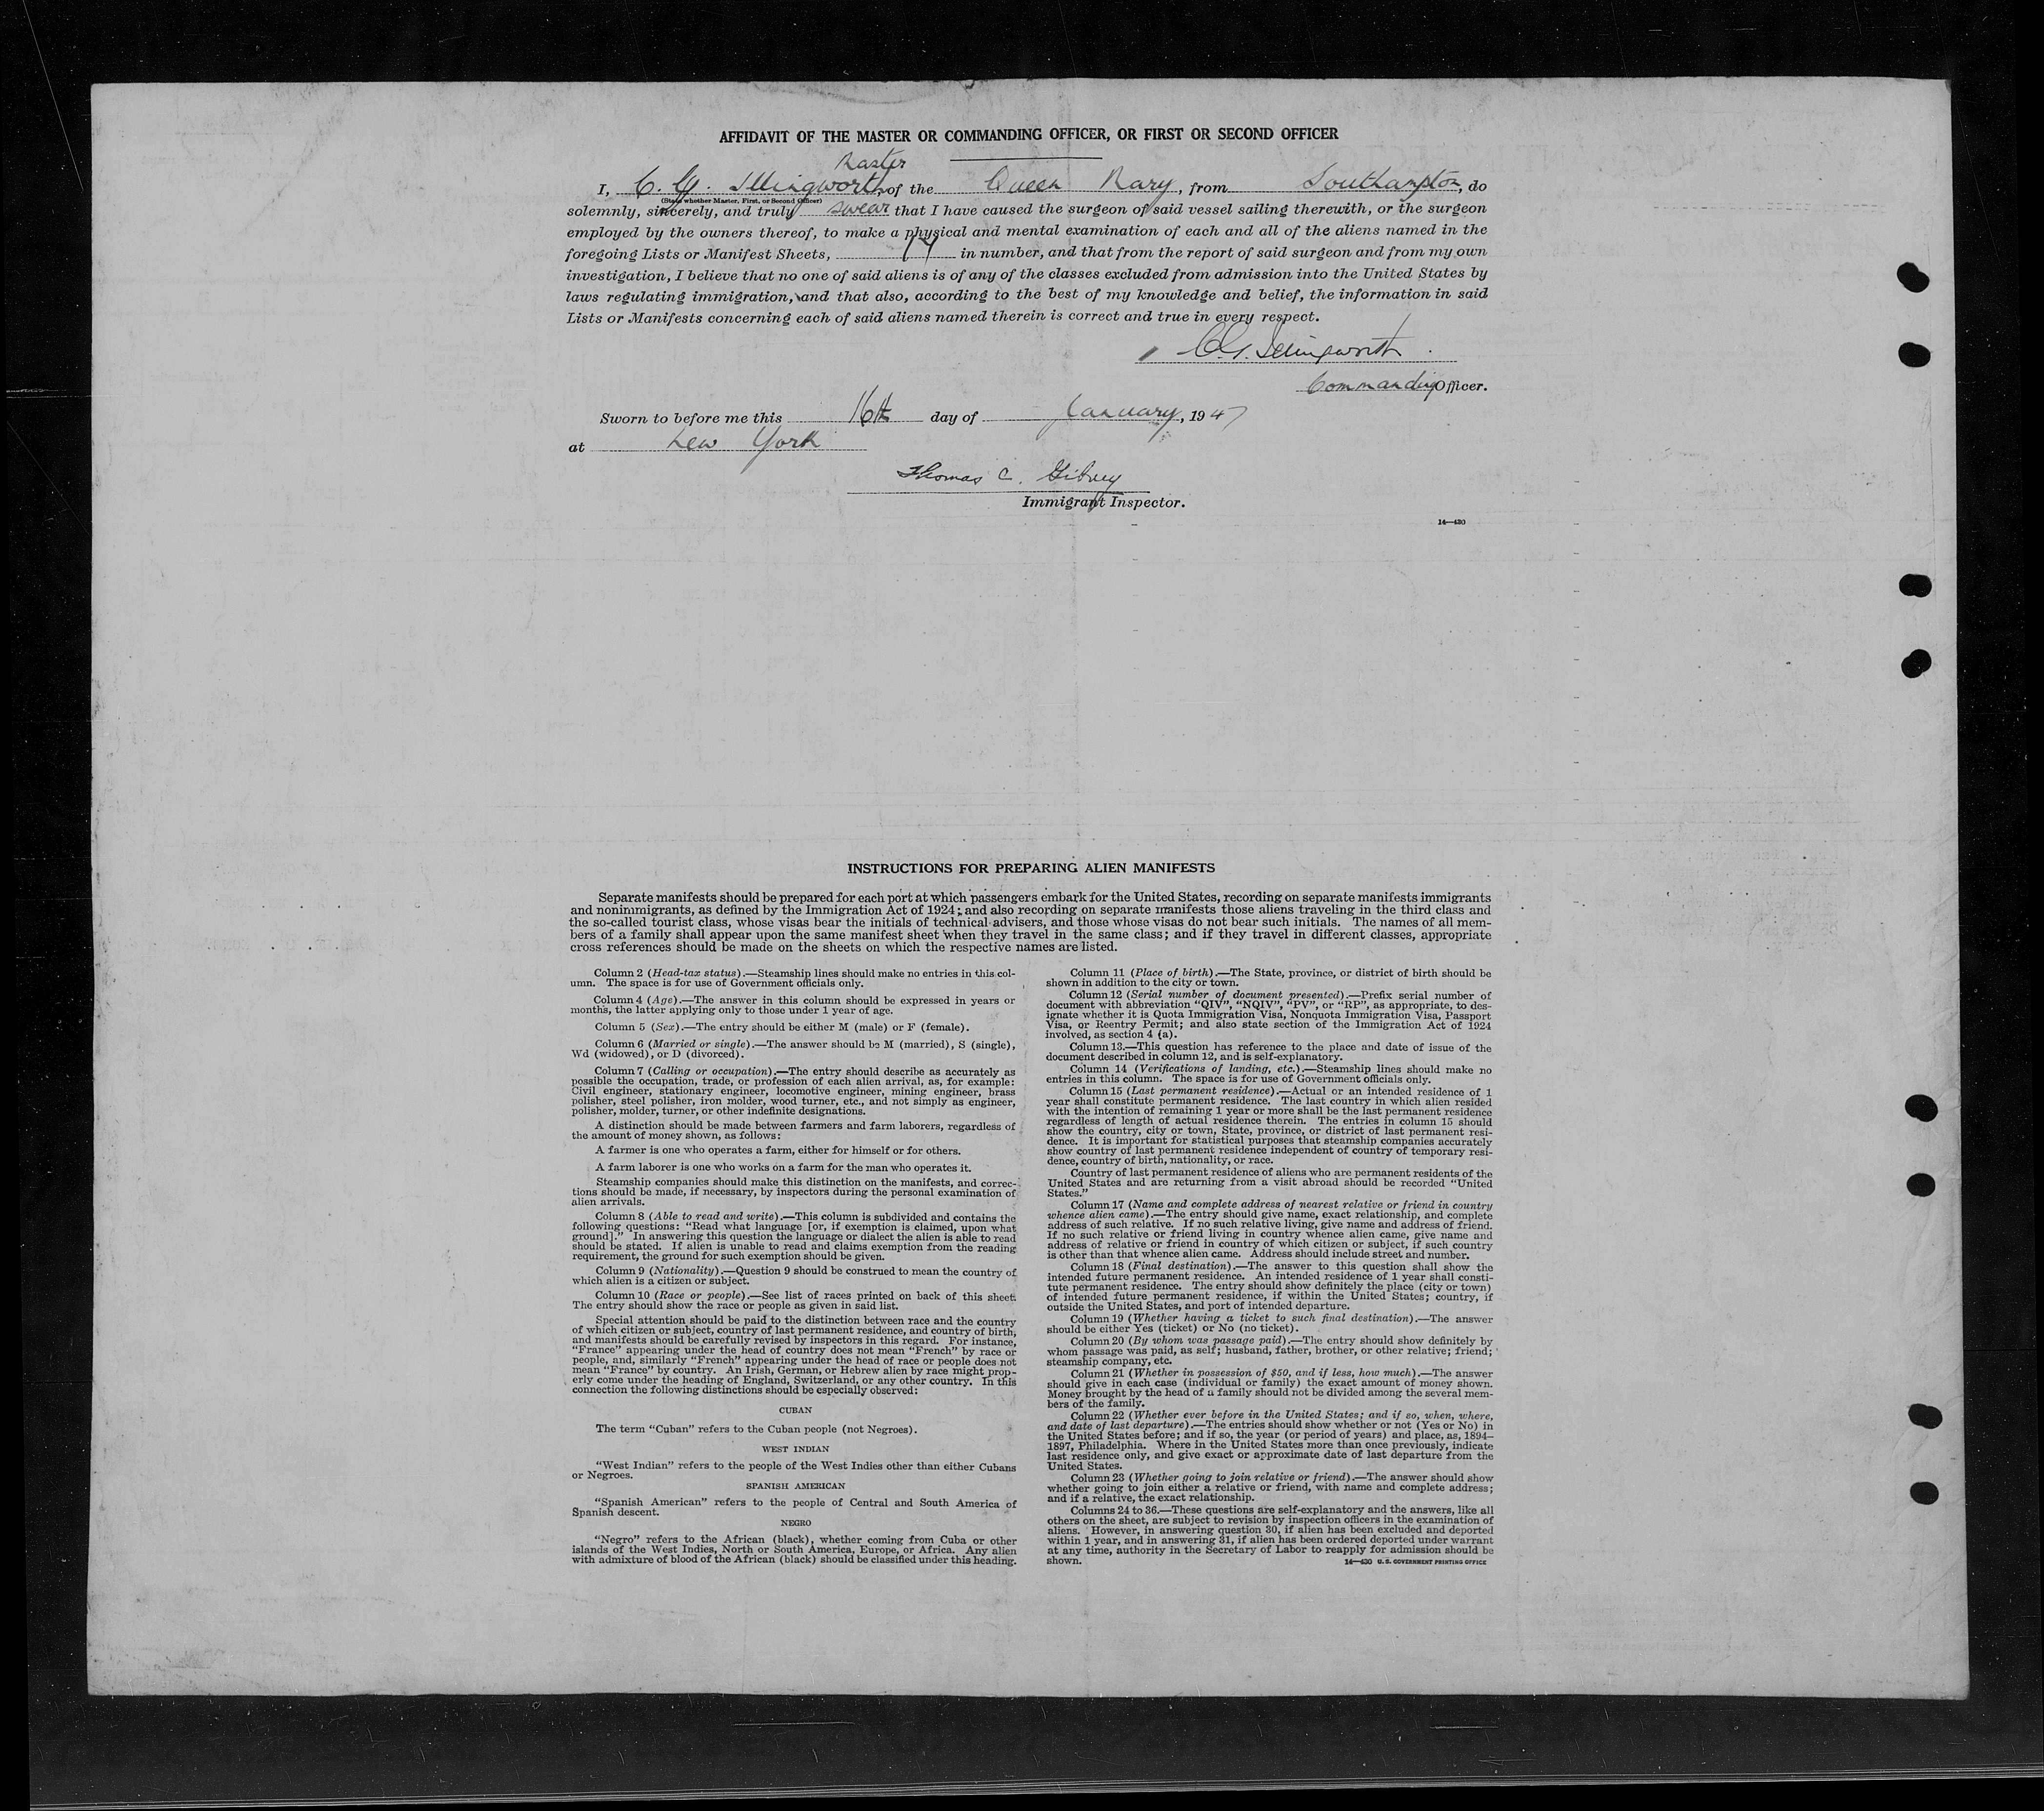 AFFIDAVIT OF THE MASTER OR COMMANDING OFFICER, OR FIRST OR SECOND OFFICER
Master
I, C. G. Illingworth, of the Queen Mary, from Southampton, do
(State whether Master, First, or Second Officer)
solemnly, sincerely, and truly swear that I have caused the surgeon of said vessel sailing therewith, or the surgeon
employed by the owners thereof, to make a physical and mental examination of each and all of the aliens named in the
foregoing Lists or Manifest Sheets, in number, and that from the report of said surgeon and from my own
investigation, I believe that no one of said aliens is of any of the classes excluded from admission into the United States by
laws regulating immigration, and that also, according to the best of my knowledge and belief, the information in said
Lists or Manifests concerning each of said aliens named therein is correct and true in every respect.
C. G. Illingworth.
Commanding Officer.
Sworn to before me this 16th day of January, 1947
at New York
Thomas C. Gibney
Immigrant Inspector.
14—430
INSTRUCTIONS FOR PREPARING ALIEN MANIFESTS
Separate manifests should be prepared for each port at which passengers embark for the United States, recording on separate manifests immigrants
and nonimmigrants, as defined by the Immigration Act of 1924; and also recording on separate manifests those aliens traveling in the third class and
the so-called tourist class, whose visas bear the initials of technical advisers, and those whose visas do not bear such initials. The names of all mem-
bers of a family shall appear upon the same manifest sheet when they travel in the same class; and if they travel in different classes, appropriate
cross references should be made on the sheets on which the respective names are listed.
Column 2 (Head-tax status).—Steamship lines should make no entries in this col-
umn. The space is for use of Government officials only.
Column 4 (Age).—The answer in this column should be expressed in years or
months, the latter applying only to those under 1 year of age.
Column 5 (Sex).—The entry should be either M (male) or F (female).
Column 6 (Married or single).—The answer should be M (married), S (single),
Wd (widowed), or D (divorced).
Column 7 (Calling or occupation).—The entry should describe as accurately as
possible the occupation, trade, or profession of each alien arrival, as, for example:
Civil engineer, stationary engineer, locomotive engineer, mining engineer, brass
polisher, steel polisher, iron molder, wood turner, etc., and not simply as engineer,
polisher, molder, turner, or other indefinite designations.
A distinction should be made between farmers and farm laborers, regardless of
the amount of money shown, as follows:
A farmer is one who operates a farm, either for himself or for others.
A farm laborer is one who works on a farm for the man who operates it.
Steamship companies should make this distinction on the manifests, and correc-
tions should be made, if necessary, by inspectors during the personal examination of
alien arrivals.
Column 8 (Able to read and write).—This column is subdivided and contains the
following questions: "Read what language [or, if exemption is claimed, upon what
ground]." In answering this question the language or dialect the alien is able to read
should be stated. If alien is unable to read and claims exemption from the reading
requirement, the ground for such exemption should be given.
Column 9 (Nationality).—Question 9 should be construed to mean the country of
which alien is a citizen or subject.
Column 10 (Race or people).—See list of races printed on back of this sheet.
The entry should show the race or people as given in said list.
Special attention should be paid to the distinction between race and the country
of which citizen or subject, country of last permanent residence, and country of birth,
and manifests should be carefully revised by inspectors in this regard. For instance,
"France" appearing under the head of country does not mean "French" by race or
people, and, similarly "French" appearing under the head of race or people does not
mean "France" by country. An Irish, German, or Hebrew alien by race might prop-
erly come under the heading of England, Switzerland, or any other country. In this
connection the following distinctions should be especially observed:
CUBAN
The term "Cuban" refers to the Cuban people (not Negroes).
WEST INDIAN
"West Indian" refers to the people of the West Indies other than either Cubans
or Negroes.
SPANISH AMERICAN
"Spanish American" refers to the people of Central and South America of
Spanish descent.
NEGRO
"Negro" refers to the African (black), whether coming from Cuba or other
islands of the West Indies, North or South America, Europe, or Africa. Any alien
with admixture of blood of the African (black) should be classified under this heading.
Column 11 (Place of birth).—The State, province, or district of birth should be
shown in addition to the city or town.
Column 12 (Serial number of document presented).—Prefix serial number of
document with abbreviation "QIV", "NQIV", "PV", or "RP", as appropriate, to des-
ignate whether it is Quota Immigration Visa, Nonquota Immigration Visa, Passport
Visa, or Reentry Permit; and also state section of the Immigration Act of 1924
involved, as section 4 (a).
Column 13.—This question has reference to the place and date of issue of the
document described in column 12, and is self-explanatory.
Column 14 (Verifications of landing, etc.).—Steamship lines should make no
entries in this column. The space is for use of Government officials only.
Column 15 (Last permanent residence).—Actual or an intended residence of 1
year shall constitute permanent residence. The last country in which alien resided
with the intention of remaining 1 year or more shall be the last permanent residence
regardless of length of actual residence therein. The entries in column 15 should
show the country, city or town, State, province, or district of last permanent resi-
dence. It is important for statistical purposes that steamship companies accurately
show country of last permanent residence independent of country of temporary resi-
dence, country of birth, nationality, or race.
Country of last permanent residence of aliens who are permanent residents of the
United States and are returning from a visit abroad should be recorded "United
States."
Column 17 (Name and complete address of nearest relative or friend in country
whence alien came).—The entry should give name, exact relationship, and complete
address of such relative. If no such relative living, give name and address of friend.
If no such relative or friend living in country whence alien came, give name and
address of relative or friend in country of which citizen or subject, if such country
is other than that whence alien came. Address should include street and number.
Column 18 (Final destination).—The answer to this question shall show the
intended future permanent residence. An intended residence of 1 year shall consti-
tute permanent residence. The entry should show definitely the place (city or town)
of intended future permanent residence, if within the United States; country, if
outside the United States, and port of intended departure.
Column 19 (Whether having a ticket to such final destination).—The answer
should be either Yes (ticket) or No (no ticket).
Column 20 (By whom was passage paid).—The entry should show definitely by
whom passage was paid, as self; husband, father, brother, or other relative; friend;
steamship company, etc.
Column 21 (Whether in possession of $50, and if less, how much).—The answer
should give in each case (individual or family) the exact amount of money shown.
Money brought by the head of a family should not be divided among the several mem-
bers of the family.
Column 22 (Whether ever before in the United States; and if so, when, where,
and date of last departure).—The entries should show whether or not (Yes or No) in
the United States before; and if so, the year (or period of years) and place, as, 1894–
1897, Philadelphia. Where in the United States more than once previously, indicate
last residence only, and give exact or approximate date of last departure from the
United States.
Column 23 (Whether going to join relative or friend).—The answer should show
whether going to join either a relative or friend, with name and complete address;
and if a relative, the exact relationship.
Columns 24 to 36.—These questions are self-explanatory and the answers, like all
others on the sheet, are subject to revision by inspection officers in the examination of
aliens. However, in answering question 30, if alien has been excluded and deported
within 1 year, and in answering 31, if alien has been ordered deported under warrant
at any time, authority in the Secretary of Labor to reapply for admission should be
shown.
14—430 U. S. GOVERNMENT PRINTING OFFICE